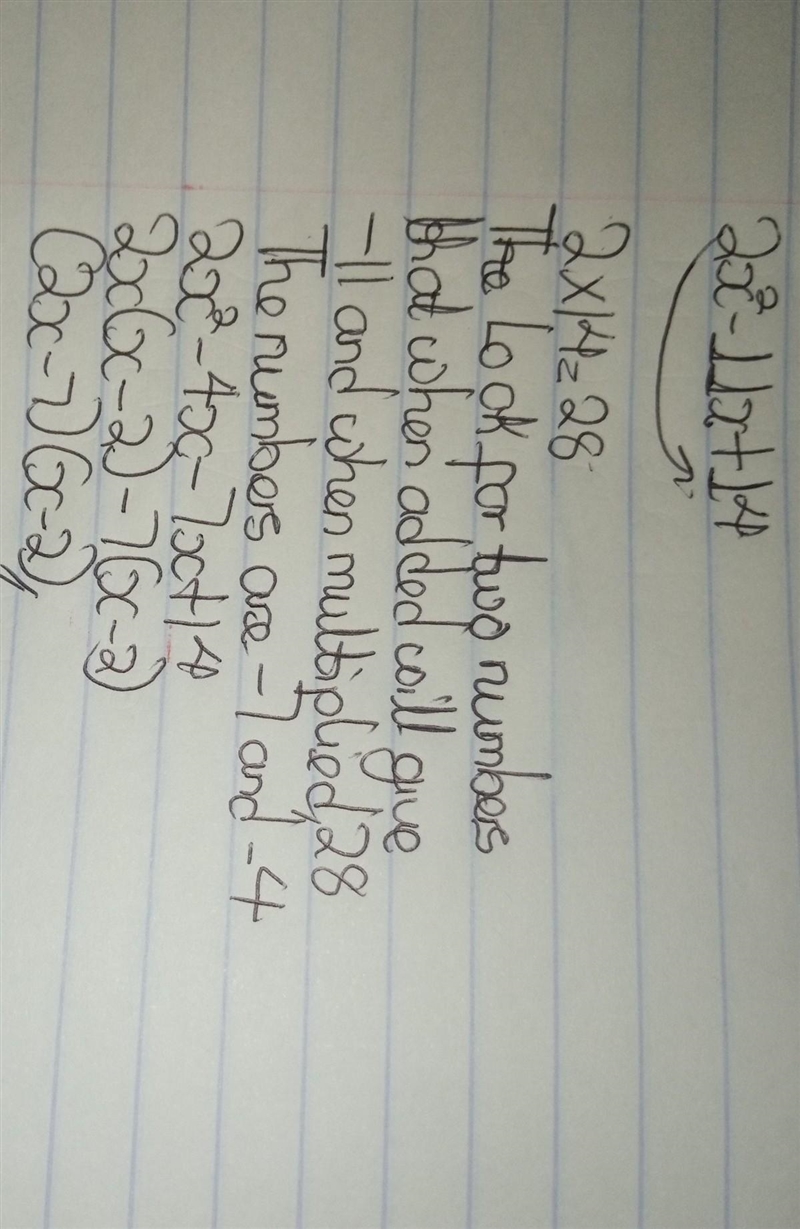 2x² - 11x + 14
2 × 14 = 28
The Look for two numbers
that when added will give
-11 and when multiplied, 28
The numbers are -7 and -4
2x² - 4x - 7x + 14
2x(x - 2) - 7(x - 2)
(2x - 7)(x - 2)